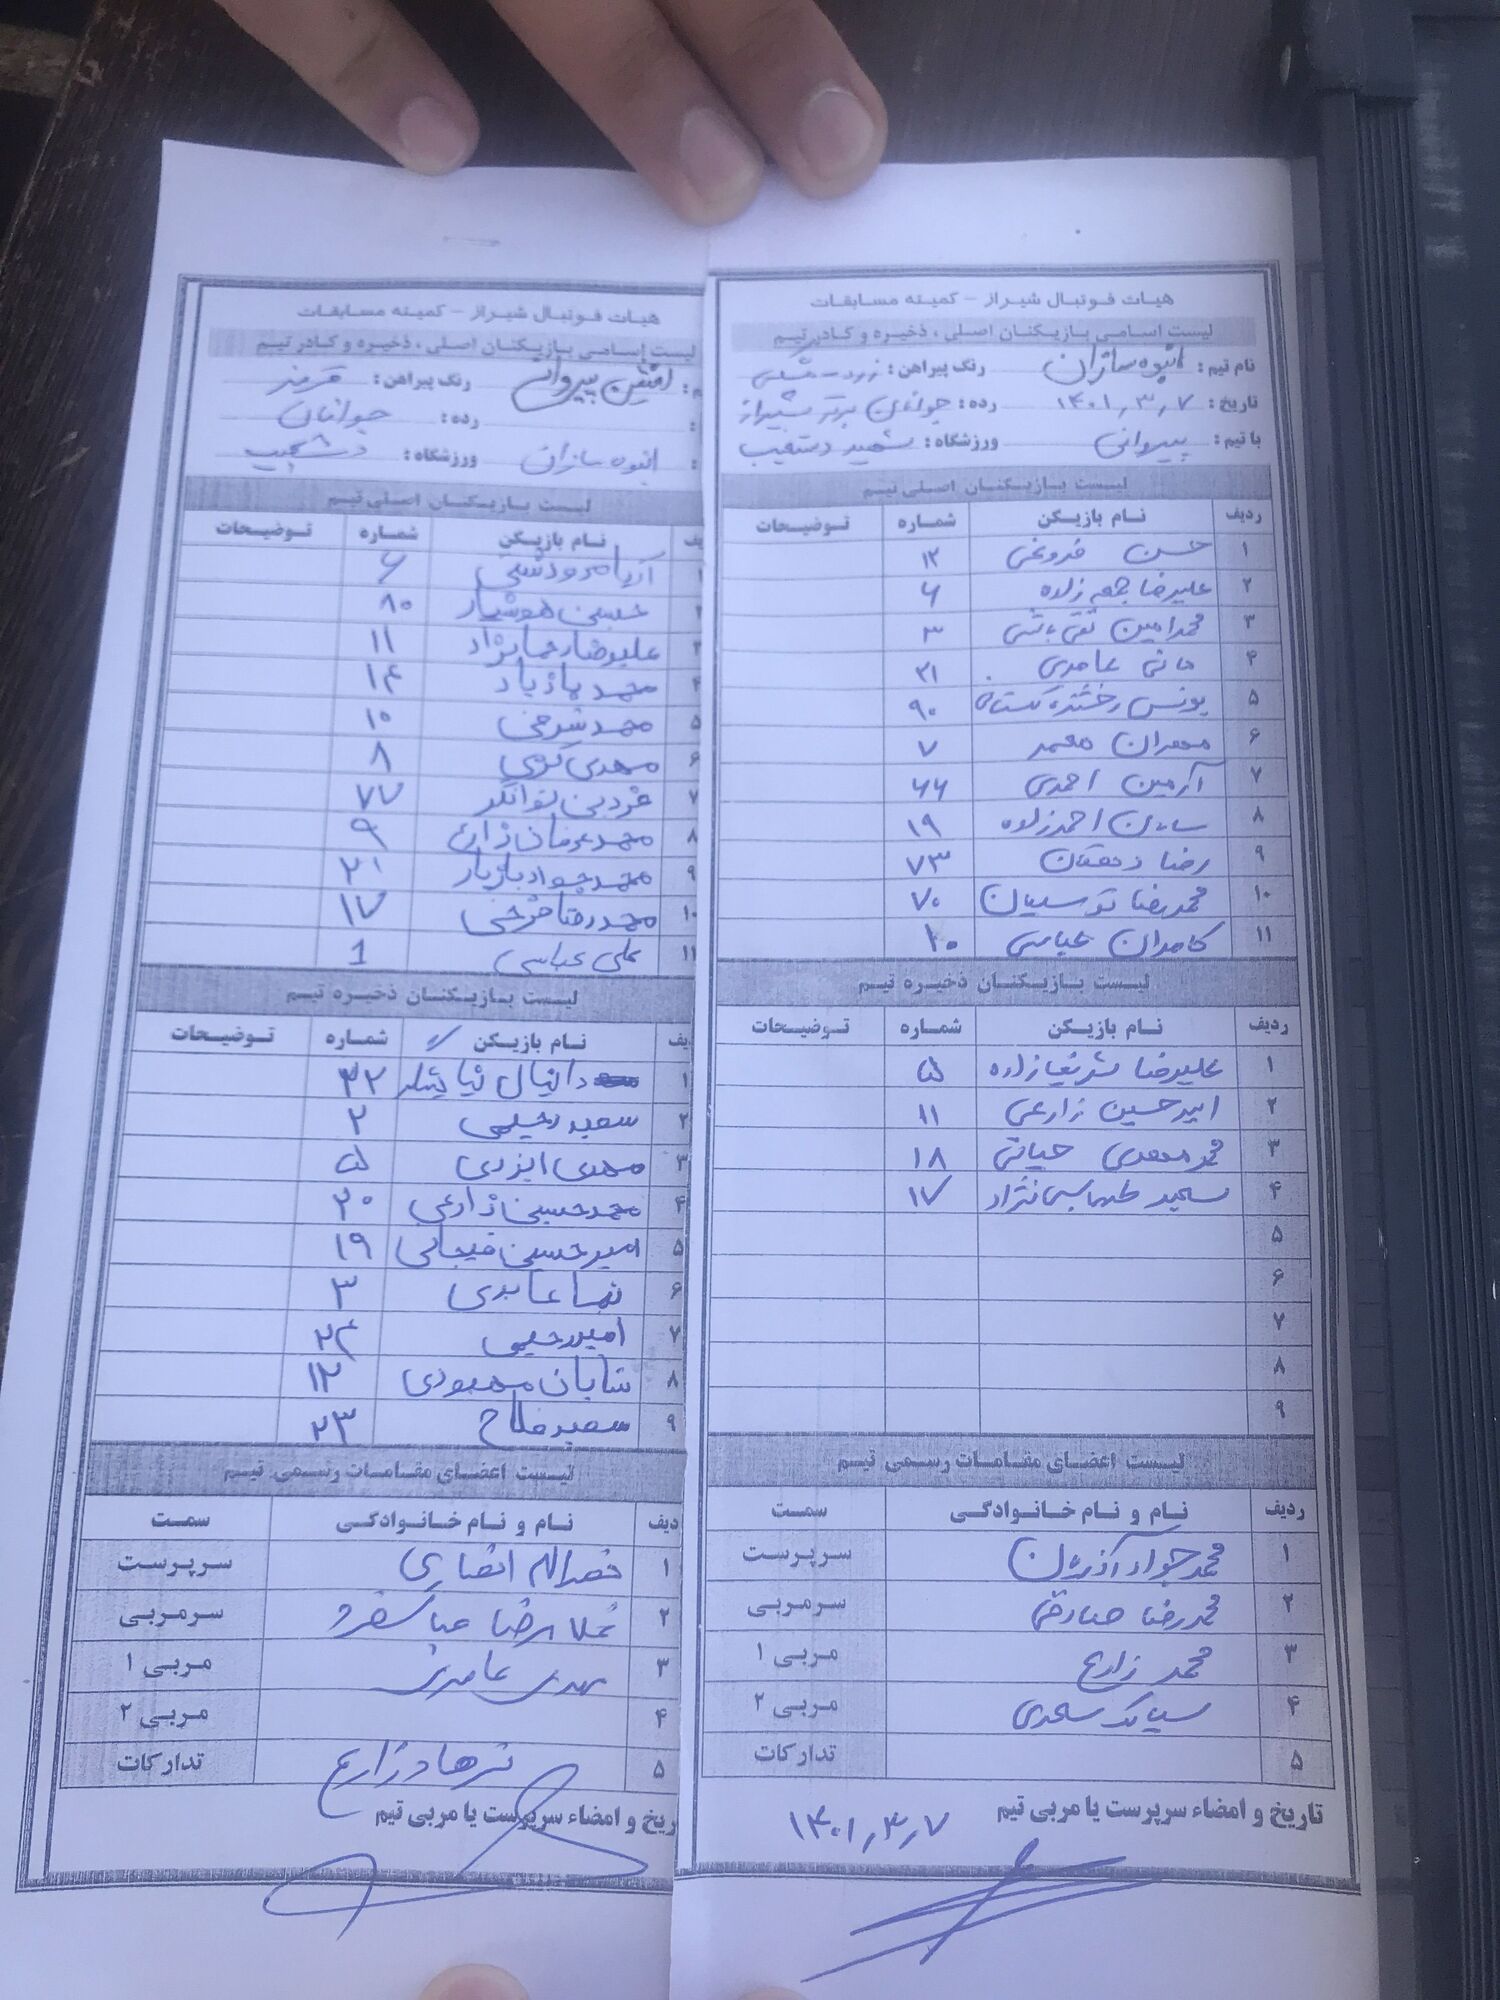 هیات فوتبال شیراز - کمیته مسابقات
لیست اسامی بازیکنان اصلی ، ذخیره و کادر تیم
نام تیم : انبوه سازان رنگ پیراهن :
تاریخ : ۱۴۰۱,۳,۷ رده : جوانان برتر شیراز
با تیم : پیروانی ورزشگاه : شهید دستغیب
لیست بازیکنان اصلی تیم
ردیف نام بازیکن شماره توضیحات
۱ حسن فروغی ۱۲
۲ علیرضا جمعه زاده ۶
۳ محمدامین تقی باشی ۳
۴ مانی عامری ۲۱
۵ یونس رخشنده ۹۰
۶ مهران معمر ۷
۷ آرمین احمدی ۶۶
۸ سامان احمدزاده ۱۹
۹ رضا دهقان ۷۳
۱۰ محمدرضا توسلیان ۷۰
۱۱ کامران عباسی ۱۰
لیست بازیکنان ذخیره تیم
ردیف نام بازیکن شماره توضیحات
۱ علیرضا شریف زاده ۵
۲ امیرحسین زارعی ۱۱
۳ محمدمهدی حیاتی ۱۸
۴ سعید طهماسبی نژاد ۱۷
۵
۶
۷
۸
۹
لیست اعضای مقامات رسمی تیم
ردیف نام و نام خانوادگی سمت
۱ محمدجواد سرپرست
۲ محمدرضا صادقی سرمربی
۳ محمد زارع مربی ۱
۴ سیامک سعدی مربی ۲
۵ تدارکات
تاریخ و امضاء سرپرست یا مربی تیم
۱۴۰۱,۳,۷
هیات فوتبال شیراز - کمیته مسابقات
لیست اسامی بازیکنان اصلی ، ذخیره و کادر تیم
م : افشین پیروانی رنگ پیراهن : قرمز
: رده : جوانان
: انبوه سازان ورزشگاه : دستغیب
لیست بازیکنان اصلی تیم
یف نام بازیکن شماره توضیحات
۱ آریا مرودشتی ۶
۲ حسین هوشیار ۸۰
۳ علیرضا رضایی نژاد ۱۱
۴ محمد بازیار ۱۴
۵ محمد شرفی ۱۰
۶ مهدی کرمی ۸
۷ فردین توانگر ۷۷
۸ محمدعرفان زارع ۹
۹ محمدجواد بازیار ۲۱
۱۰ محمدرضا فرخی ۱۷
۱۱ علی عباسی 1
لیست بازیکنان ذخیره تیم
یف نام بازیکن شماره توضیحات
۱ دانیال نیایش ۳۲
۲ سعید رحیمی ۲
۳ مهدی ایزدی ۵
۴ محمدحسین زارعی ۲۰
۵ امیرحسین ۱۹
۶ نیما عابدی ۳
۷ امیر رحیمی ۲۴
۸ شایان بهبودی ۱۲
۹ سعید فلاح ۲۳
لیست اعضای مقامات رسمی تیم
دیف نام و نام خانوادگی سمت
۱ نصراله انصاری سرپرست
۲ غلامرضا عباسفرد سرمربی
۳ مهدی عامری مربی ۱
۴ مربی ۲
۵ فرهاد زارع تدارکات
ریخ و امضاء سرپرست یا مربی تیم